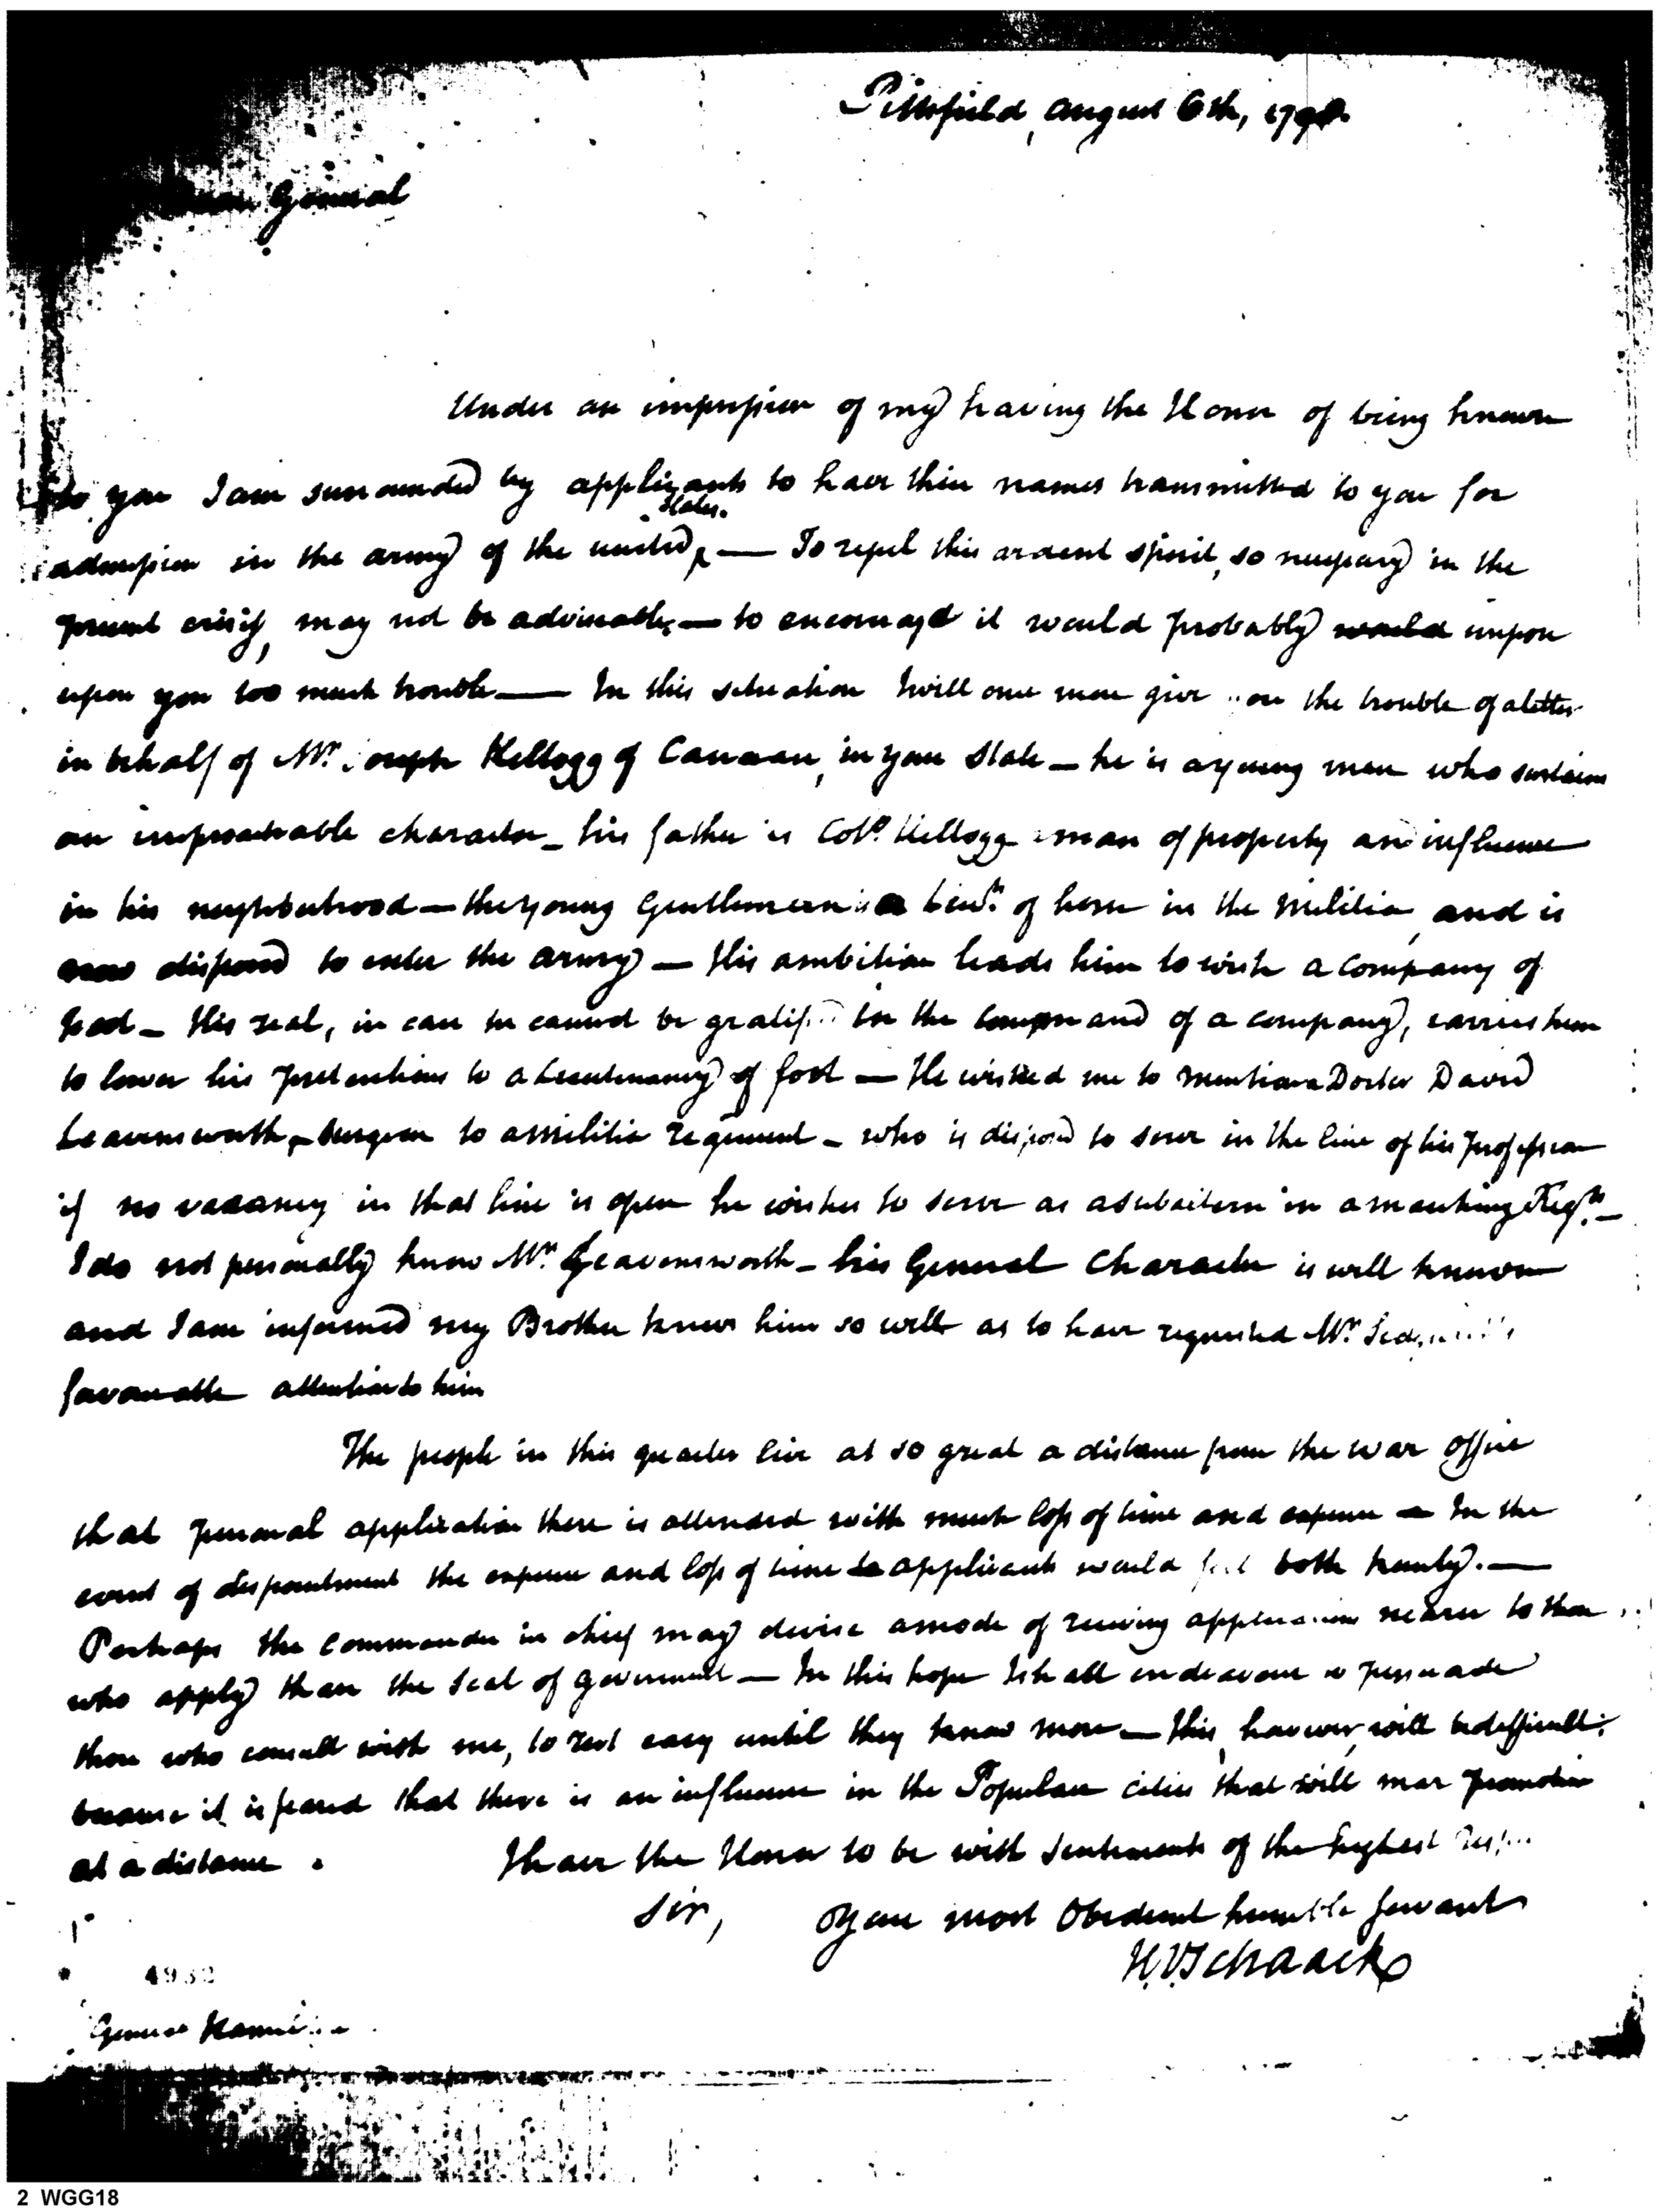 Pittsfield, august 6th, 1798.
General
Under an impression of my having the Honor of being known
to you I am surrounded by applicants to have their names transmitted to you for
States.
admission in the army of the united — To repel this ardent spirit, so necessary in the
present crisis, may not be adviseable; — to encourage it would probably would impose
upon you too much trouble — In this situation I will once more give you the trouble of a letter
in behalf of Mr. Joseph Kellogg of Canaan, in your State — he is a young man who sustains
an irreproachable character — his father is Colo. Kellogg a man of property and influence
in his neighbourhood — the young Gentleman is a Lieut. of horse in the militia, and is
now disposed to enter the army — His ambition leads him to wish a company of
foot — His zeal, in case he cannot be gratified in the command of a company, carries him
to lower his pretentions to a Lieutenancy of foot — He wished me to mention a Doctor David
Leavensworth, surgeon to a militia regiment — who is disposed to serve in the line of his profession
if no vacancy in that line is open he wishes to serve as a subaltern in a marching Regt. —
I do not personally know Mr. Leavensworth — his General Character is well known
and I am informed my Brother knows him so well as to have requested Mr.
favourable attention to him
The people in this quarter live at so great a distance from the war office
that personal application there is attended with much loss of time and expence — In the
event of dispointment the expence and loss of time to applicants would feel both keenly. —
Perhaps the commander in chief may devise a mode of receiving applications nearer to those
who apply than the seat of goverment — In this hope I shall endeavour to persuade
those who consult with me, to rest easy until they know more — this, however, will be difficult;
because it is feared that there is an influence in the Populace cities that will mar promotion
at a distance. I have the Honor to be with sentiments of the highest
Sir, your most Obedient humble Servant
H. V. Schaack
4932
General Hamilton
2 WGG18